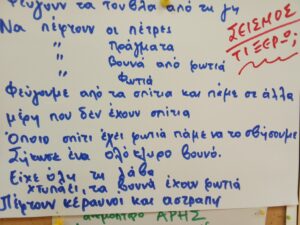 Φεύγουν τα τούβλα από τη γη
Να πέφτουν οι πέτρες
" Πράγματα
" Βουνά από φωτιά
" Φωτιά
Φεύγουμε από τα σπίτια και πάμε σε άλλα
μέρη που δεν έχουν σπίτια
Όποιο σπίτι έχει φωτιά πάμε να το σβήσουμε
Σήκωσε ένα ολόκληρο βουνό.
Είχε όλη τη λάβα
χτυπάει, τα βουνά έχουν φωτιά
Πέφτουν κέραυνοι και αστραπή
ΣΕΙΣΜΟΣ
ΤΙ ΞΕΡΩ;
ΑΡΗΣ